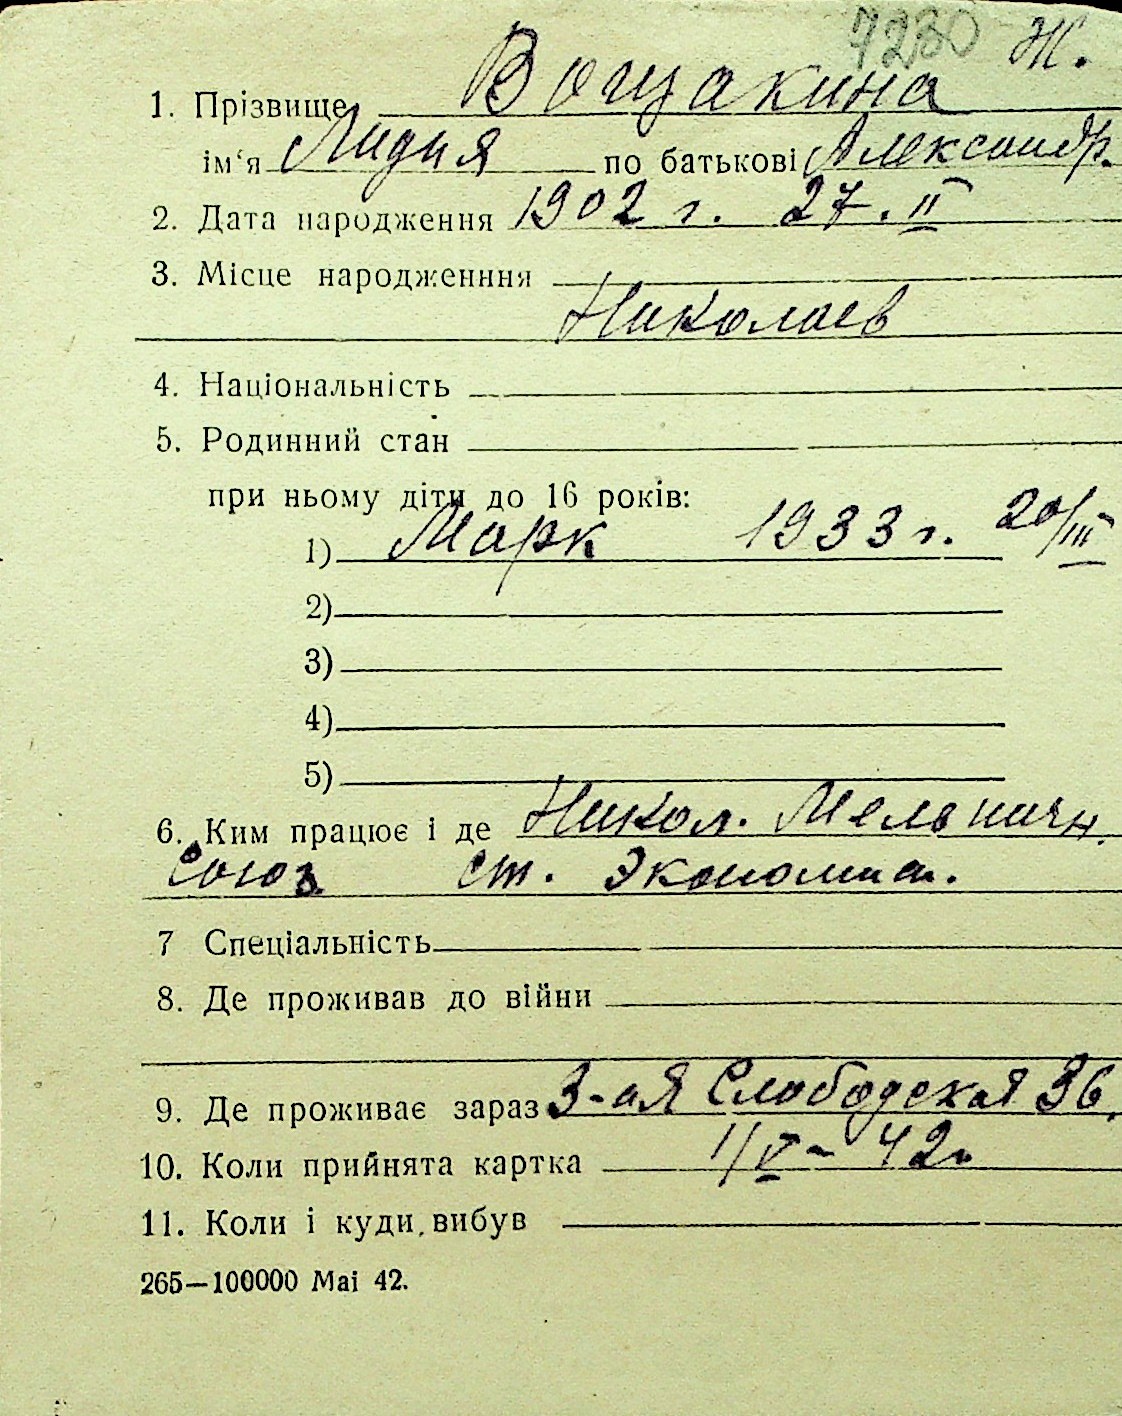 7230 Ж.
1. Прізвище Вощакина
ім'я Лидия по батькові Александр.
2. Дата народження 1902 г. 27. II
3. Місце народженння
Николаев
4. Національність
5. Родинний стан
при ньому діти до 16 років:
1) Марк 1933 г. 20/III
2)
3)
4)
5)
6. Ким працює і де Никол. Мельничн.
Союз ст. Экономист.
7 Спеціальність
8. Де проживав до війни
9. Де проживає зараз 3-ая Слободская 36.
10. Коли прийнята картка 1/V - 42.
11. Коли і куди вибув
265—100000 Mai 42.